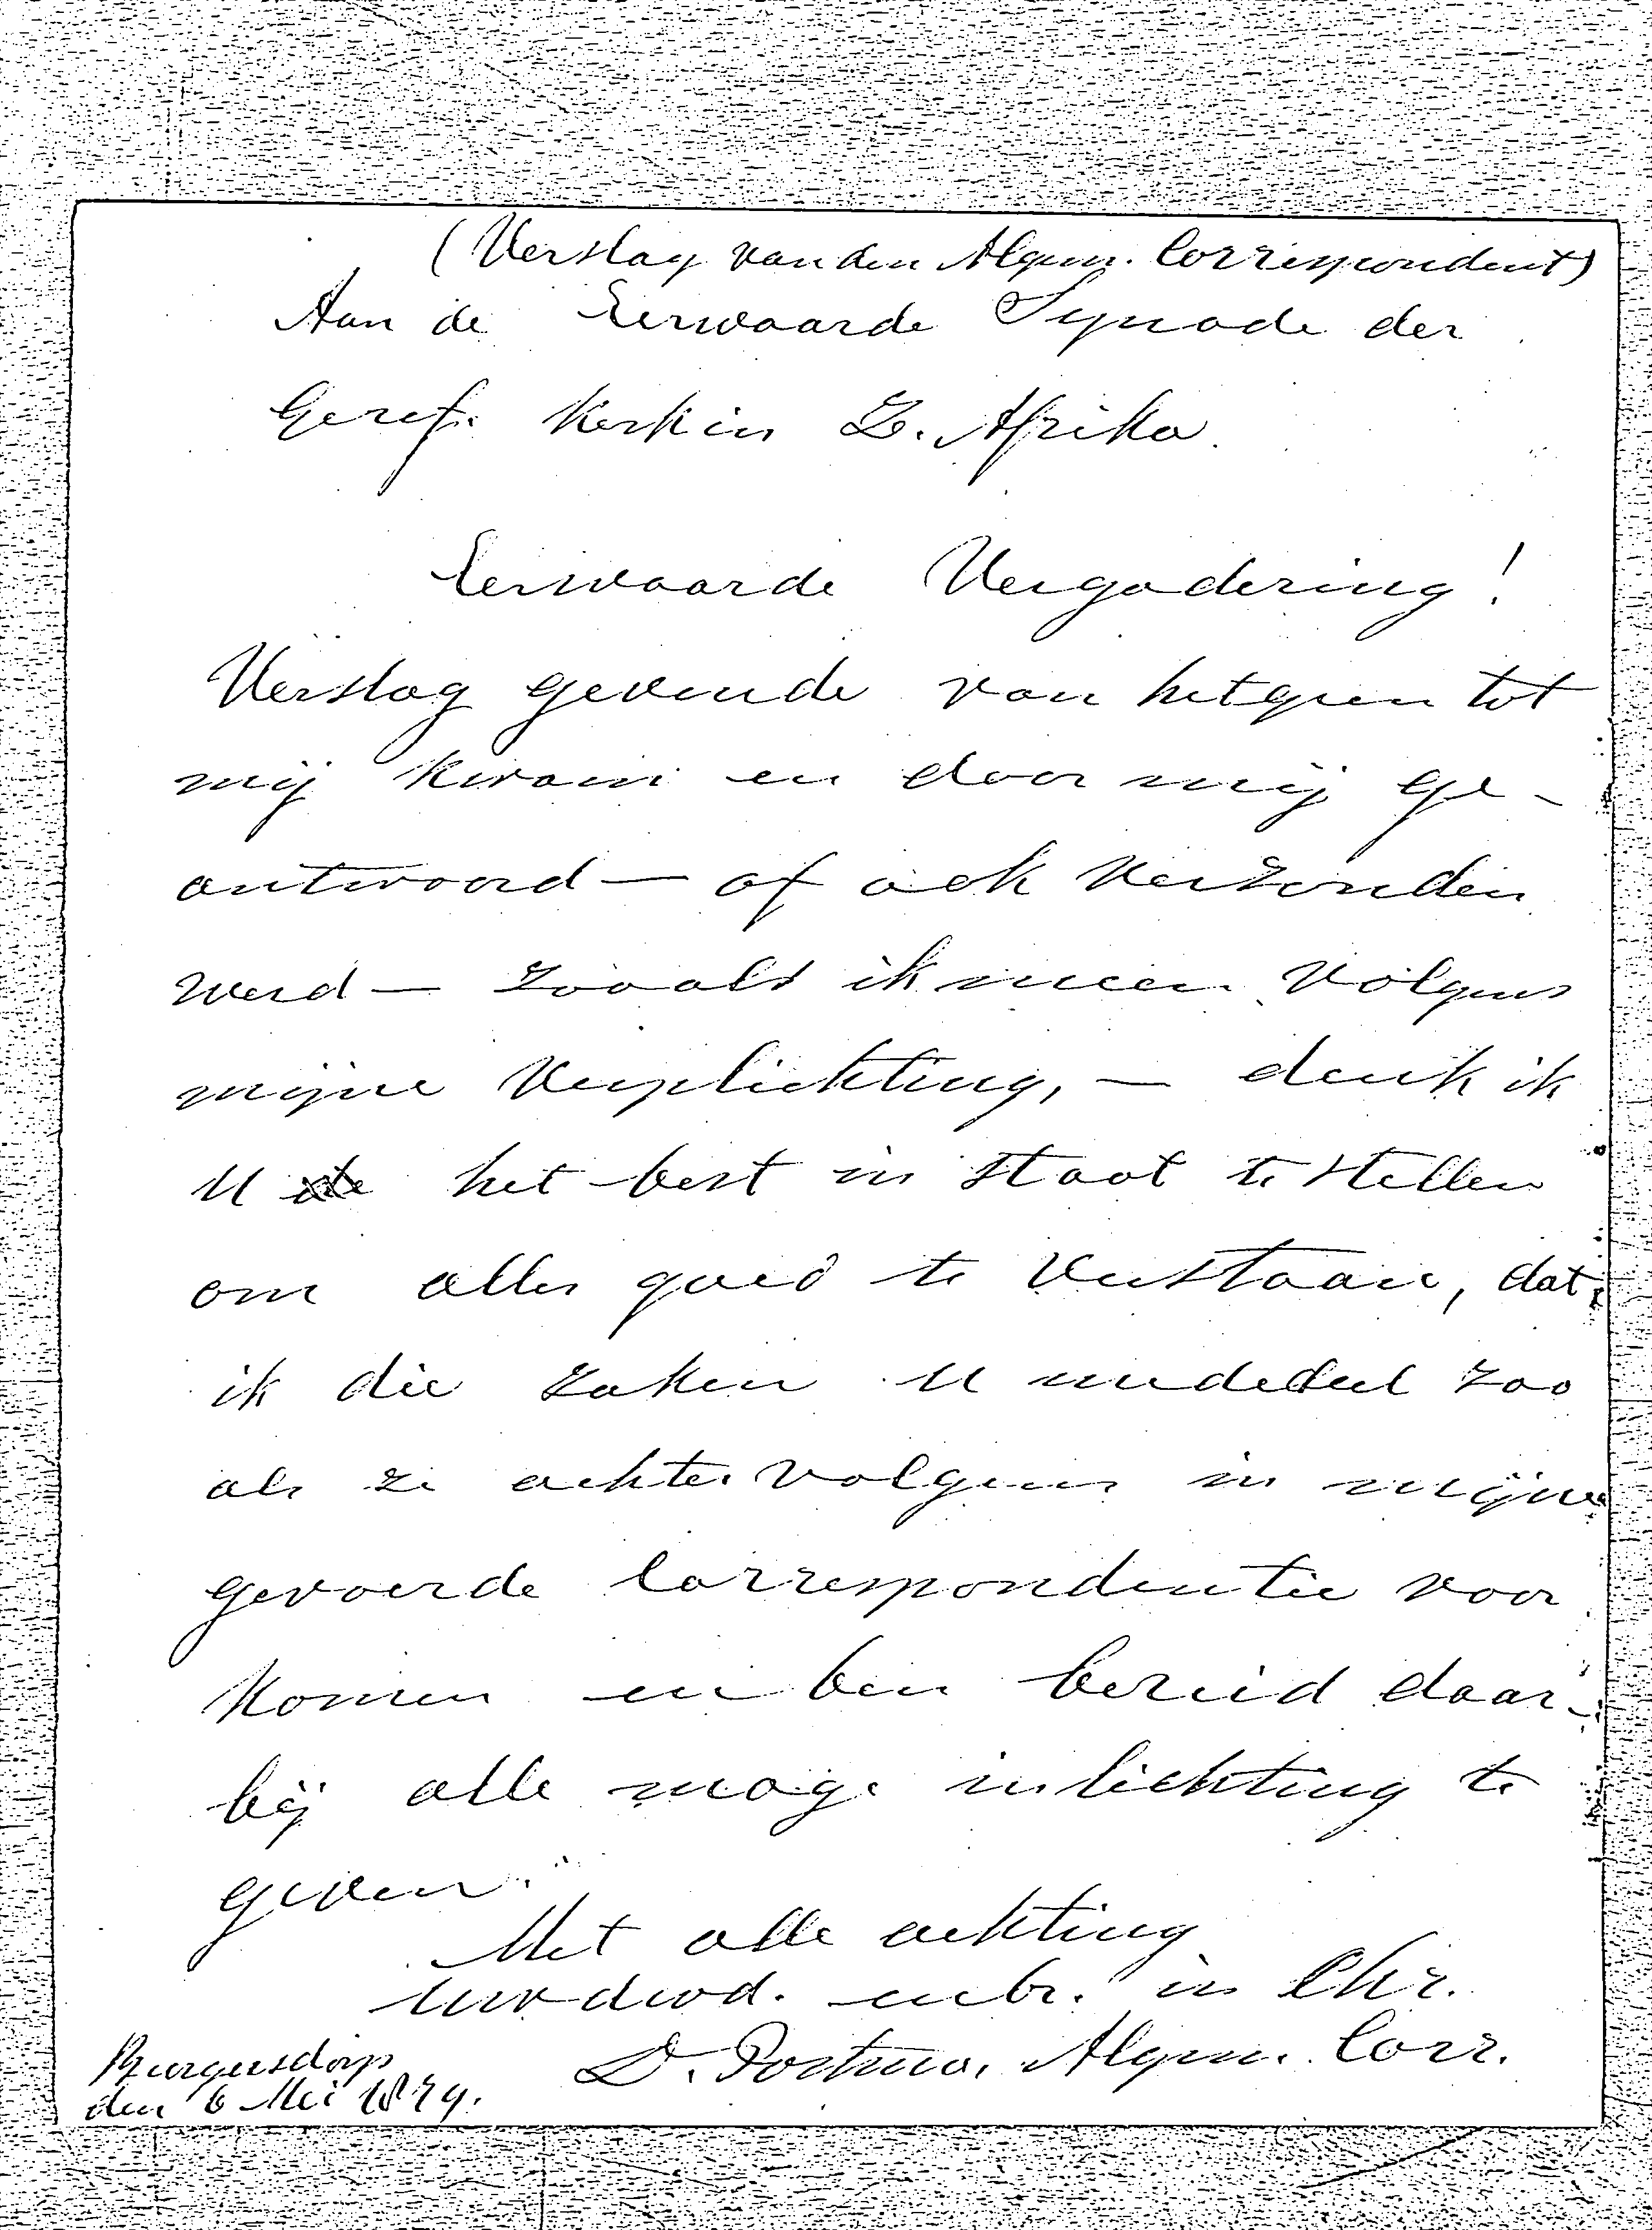 (Verslag van den Algem. Correspondent)
Aan de Eerwaarde Synode der
Geref. Kerk in Z. Afrika.
Eerwaarde Vergadering!
Verslag gevende van hetgeen tot
mij kwam en door mij ge-
antwoord — of ook verzonden
werd — zooals ik meen volgens
mijne verplichting, — denk ik
U het best in staat te stellen
om alles goed te verstaan, dat
ik die zaken U mededeel zoo
als ze achtervolgens in mijne
gevoerde Correspondentie voor
komen en ben bereid daar-
bij alle mog. inlichting te
geven.
Met alle achting
Uw dwd. mbr. in Chr.
D. Postma, Algem. Corr.
Burgersdorp
den 6 Mei 1879.